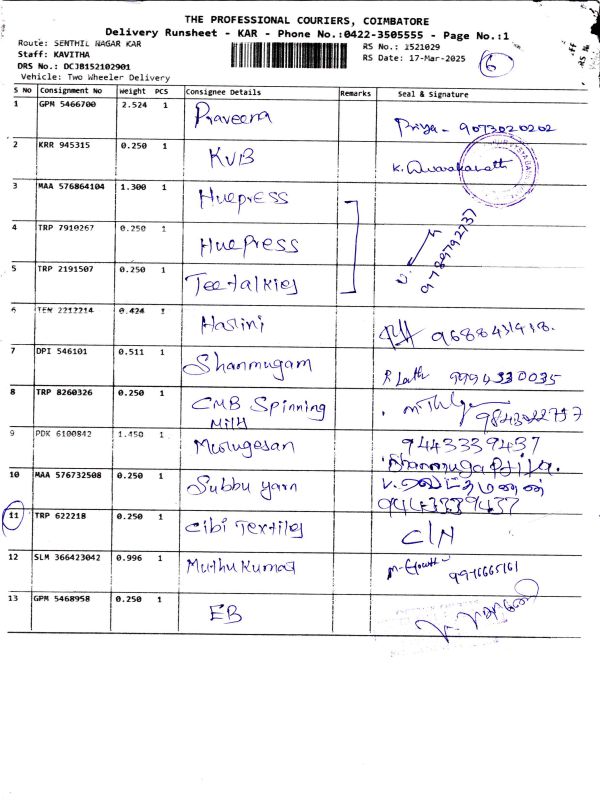 THE PROFESSIONAL COURIERS, COIMBATORE
Delivery Runsheet - KAR - Phone No.:0422-3505555 - Page No.:1
Route: SENTHIL NAGAR KAR
RS No.: 1521029
Staff: KAVITHA
RS Date: 17-Mar-2025
6
DRS No.: DCJB152102901
Vehicle: Two Wheeler Delivery
S No Consignment No Weight PCS Consignee Details Remarks Seal & Signature
1 GPM 5466700 2.524 1 Praveena Priya - 9073020202
2 KRR 945315 0.250 1 KVB K. Dwarakanath
3 MAA 576864104 1.300 1 Huepress
4 TRP 7910267 0.250 1 Huepress 9789792737
5 TRP 2191507 0.250 1 Teetalkies
6 TEN 2212214 0.424 1 Harini
7 DPI 546101 0.511 1 Shanmugam R Lath 9994330035
8 TRP 8260326 0.250 1 CMB Spinning Mill
9 PDK 6100842 1.450 1 Murugesan 9443339437
10 MAA 576732508 0.250 1 Subbu yarn
9443339437
11 TRP 622218 0.250 1 Cibi Textiles C/N
12 SLM 366423042 0.996 1 Muthu Kumar
13 GPM 5468958 0.250 1 EB